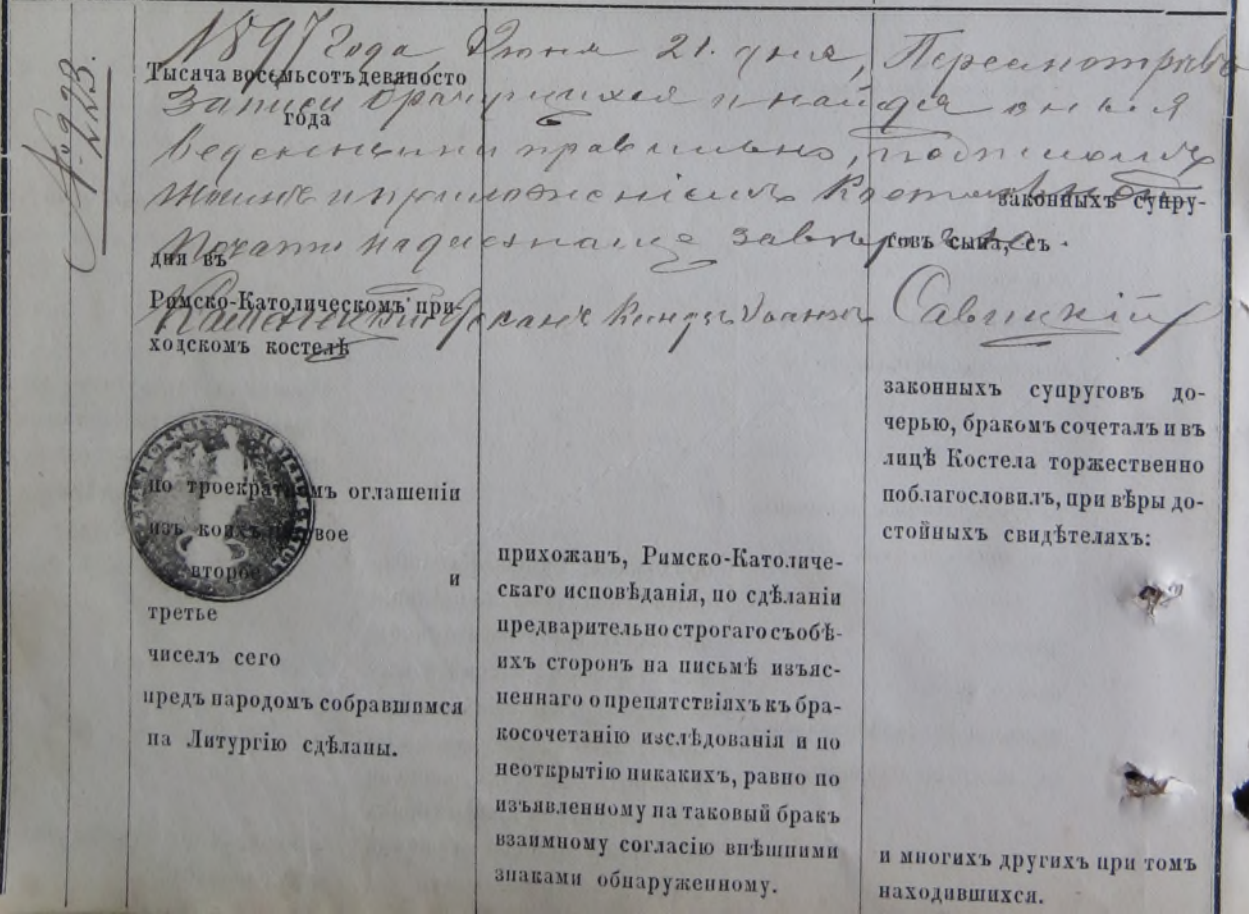 № 223.
1897 года, Юня 21. дня, Пересмотрѣвъ
записи брачущихся и найдя оныя
веденными правильно, подписомъ
моимъ и приложеніемъ Костельной
печати надлежаще завѣряю.
Каменецкій Деканъ Ксендзъ Іоаннъ Савицкій
Тысяча восемьсотъ девяносто
года
дня въ
Римско-Католическомъ при-
ходскомъ костелѣ
по троекратномъ оглашеніи
изъ коихъ первое
второе и
третье
числъ сего
предъ народомъ собравшимся
на Литургію сдѣланы.
прихожанъ, Римско-Католиче-
скаго исповѣданія, по сдѣланіи
предварительно строгаго съ обѣ-
ихъ сторонъ на письмѣ изъяс-
неннаго о препятствіяхъ къ бра-
косочетанію изслѣдованія и по
неоткрытію никакихъ, равно по
изъявленному на таковый бракъ
взаимному согласію внѣшними
знаками обнаруженному.
законныхъ супру-
говъ сына, съ
законныхъ супруговъ до-
черью, бракомъ сочеталъ и въ
лицѣ Костела торжественно
поблагословилъ, при вѣры до-
стойныхъ свидѣтеляхъ:
и многихъ другихъ при томъ
находившихся.